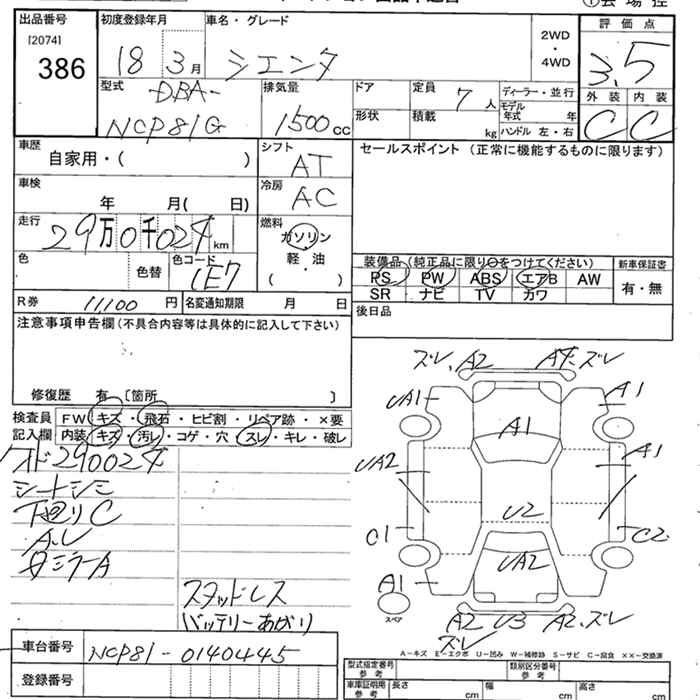 出品番号
[2074]
386
初度登録年月
18 3月
車名・グレード
シエンタ
2WD
・
4WD
評価点
3.5
外装 内装
C C
型式
DBA-
NCP81G
排気量
1500cc
ドア
形状
定員 7人
積載 kg
ディーラー・並行
モデル年式 年
ハンドル 左・右
車歴
自家用・( )
シフト
AT
セールスポイント (正常に機能するものに限ります)
車検
年 月( 日)
冷房
AC
走行
29万0千024km
燃料
ガソリン
軽・油
( )
色
色替
色コード
1E7
装備品(純正品に限り○をつけてください)
PS PW ABS エアB AW
SR ナビ TV カワ
新車保証書
有・無
R券 11100円
名変通知期限 月 日
後日品
注意事項申告欄(不具合内容等は具体的に記入して下さい)
修復歴 有 [箇所 ]
検査員
記入欄
FW キズ・飛石・ヒビ割・リペア跡・×要
内装 キズ・汚レ・コゲ・穴・スレ・キレ・破レ
290024
シートシミ
下廻りC
ミラーA
スタッドレス
バッテリーあがり
車台番号
NCP81-0140445
登録番号
ズレ、A2
A4、ズレ
UA1
A1
A1
UA2
A1
U2
C1
C2
UA2
A1
スペア
A2 U3 A2、ズレ
ズレ
A-キズ E-エクボ U-凹み W-補修跡 S-サビ C-腐食 ××-交換済
型式指定番号
参考
類別区分番号
参考
車庫証明用
参考
長さ cm
幅 cm
高さ cm